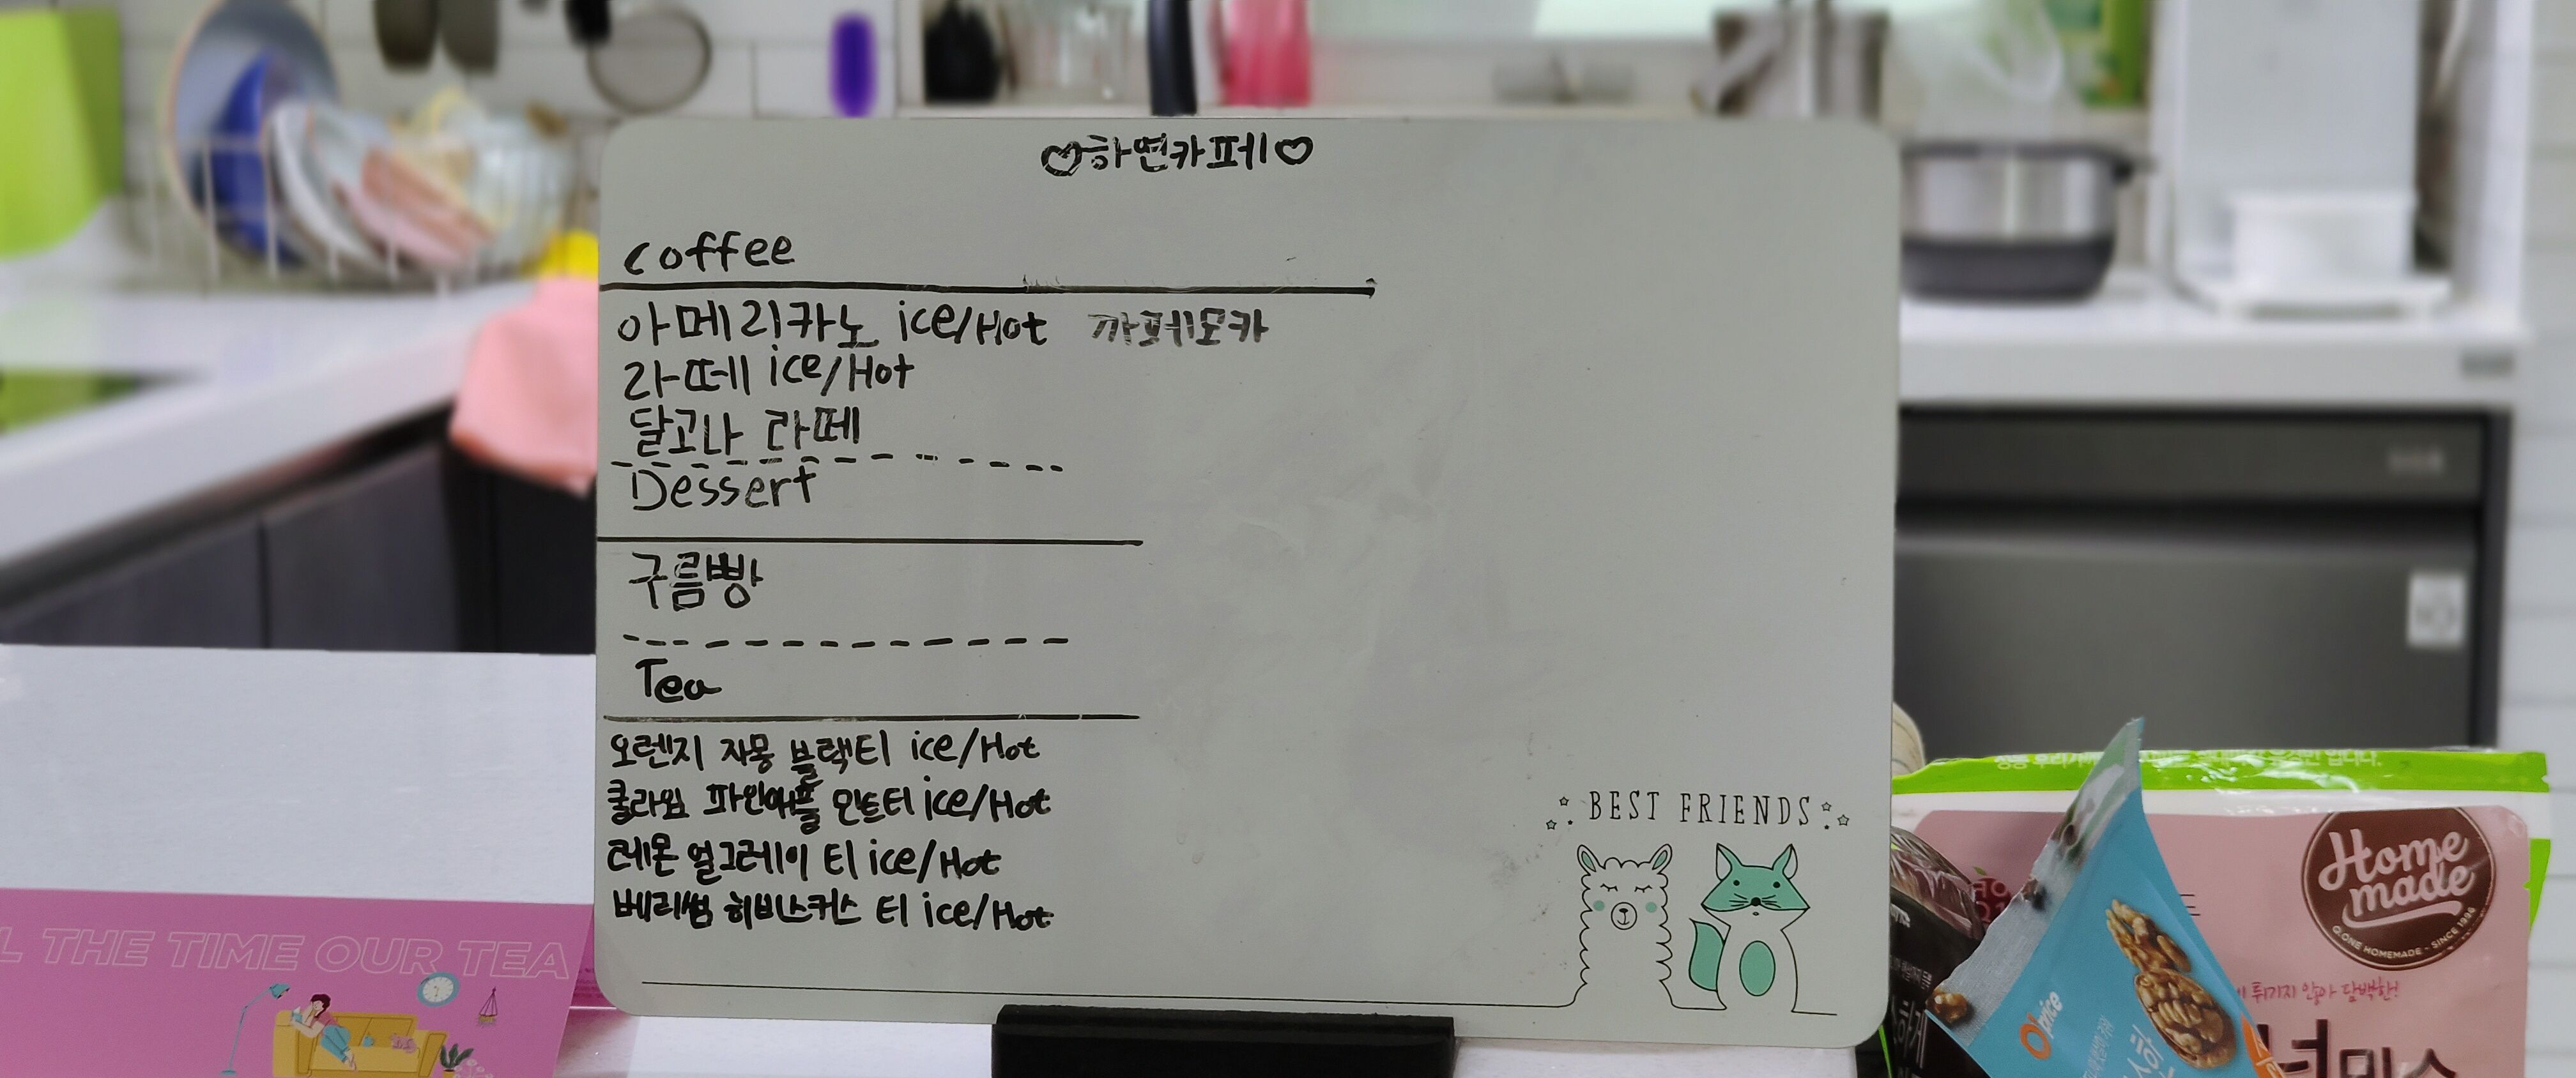 ♡하면카페♡
coffee
아메리카노 ice/Hot 까페모카
라떼 ice/Hot
달고나 라떼
Dessert
구름빵
Tea
오렌지 자몽 블랙티 ice/Hot
쿨라임 파인애플 민트티 ice/Hot
레몬 얼그레이 티 ice/Hot
베리썸 히비스커스 티 ice/Hot
BEST FRIENDS
L THE TIME OUR TEA
Home made
G.ONE HOMEMADE - SINCE 1996
튀기지 않아 담백한!
O'price
넛믹스